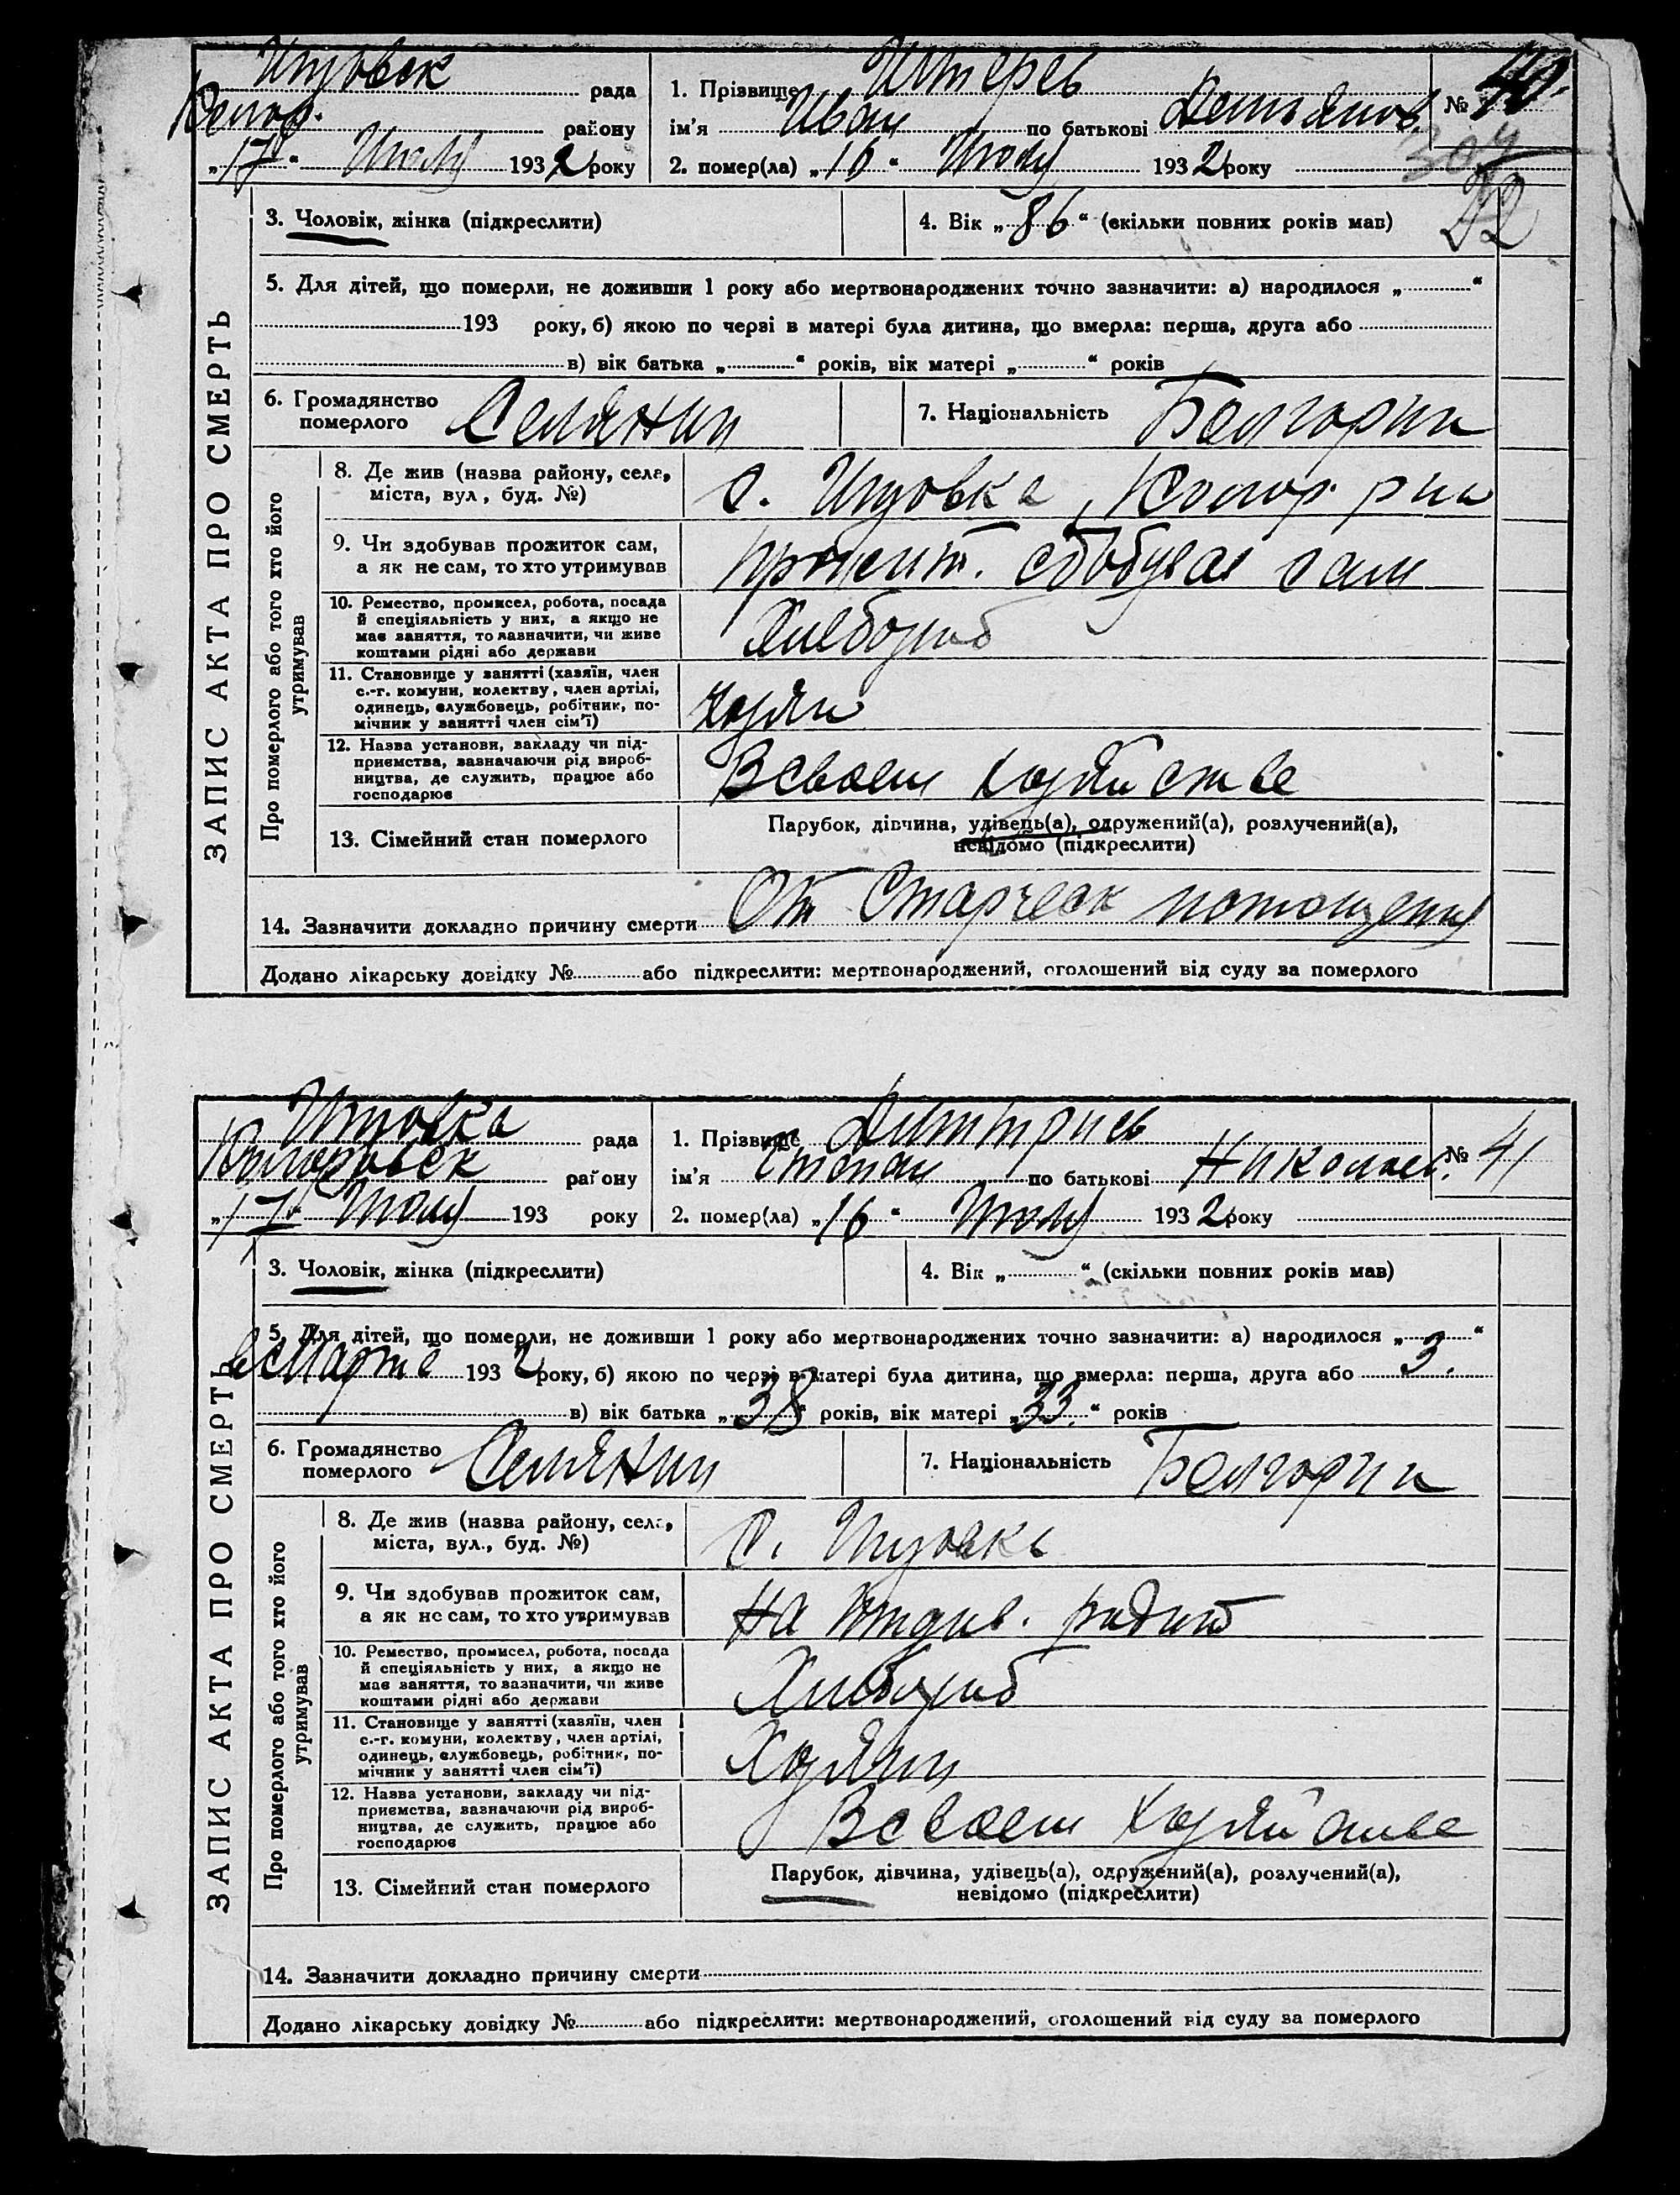 рада
1. Прізвище
№ 40.
району
ім’я Иван по батькові Демьянов.
„17“ Июля 1932 року
2. помер(ла) „16“ Июля 1932 року
304
22
3. Чоловік, жінка (підкреслити)
4. Вік „86“ (скільки повних років мав)
5. Для дітей, що померли, не доживши 1 року або мертвонароджених точно зазначити: а) народилося „ “
193 року, б) якою по черзі в матері була дитина, що вмерла: перша, друга або
в) вік батька „ “ років, вік матері „ “ років
6. Громадянство
померлого
Селянин
7. Національність Болгарин
ЗАПИС АКТА ПРО СМЕРТЬ
Про померлого або того хто його
утримував
8. Де жив (назва району, села,
міста, вул, буд. №)
с.
9. Чи здобував прожиток сам,
а як не сам, то хто утримував
сам
10. Ремество, промисел, робота, посада
й спеціяльність у них, а якщо не
має заняття, то зазначити, чи живе
коштами рідні або держави
Хлебороб
11. Становище у занятті (хазяїн, член
с.-г. комуни, колектву, член артілі,
одинець, службовець, робітник, по-
мічник у занятті член сім’ї)
Хозяин
12. Назва установи, закладу чи під-
приємства, зазначаючи рід вироб-
ництва, де служить, працює або
господарює
В своем хозяйстве
13. Сімейний стан померлого
Парубок, дівчина, удівець(а), одружений(а), розлучений(а),
невідомо (підкреслити)
14. Зазначити докладно причину смерти От Старческ истощения
Додано лікарську довідку № або підкреслити: мертвонароджений, оголошений від суду за померлого
рада
1. Прізвище Димитриев
№ 41
району
ім’я Степан по батькові Николаев.
„17“ Июля 193 року
2. помер(ла) „16“ Июля 1932 року
3. Чоловік, жінка (підкреслити)
4. Вік „ “ (скільки повних років мав)
5. Для дітей, що померли, не доживши 1 року або мертвонароджених точно зазначити: а) народилося „ “
Марте 1932 року, б) якою по черзі в матері була дитина, що вмерла: перша, друга або 3.
в) вік батька „38“ років, вік матері „33.“ років
6. Громадянство
померлого
Селянин
7. Національність Болгарин
ЗАПИС АКТА ПРО СМЕРТЬ
Про померлого або того хто його
утримував
8. Де жив (назва району, села,
міста, вул., буд. №)
с.
9. Чи здобував прожиток сам,
а як не сам, то хто утримував
На
10. Ремество, промисел, робота, посада
й спеціяльність у них, а якщо не
має заняття, то зазначити, чи живе
коштами рідні або держави
Хлебороб
11. Становище у занятті (хазяїн, член
с.-г. комуни, колектву, член артілі,
одинець, службовець, робітник, по-
мічник у занятті член сім’ї)
Хозяин
12. Назва установи, закладу чи під-
приємства, зазначаючи рід вироб-
ництва, де служить, працює або
господарює
В своем хозяйстве
13. Сімейний стан померлого
Парубок, дівчина, удівець(а), одружений(а), розлучений(а),
невідомо (підкреслити)
14. Зазначити докладно причину смерти
Додано лікарську довідку № або підкреслити: мертвонароджений, оголошений від суду за померлого